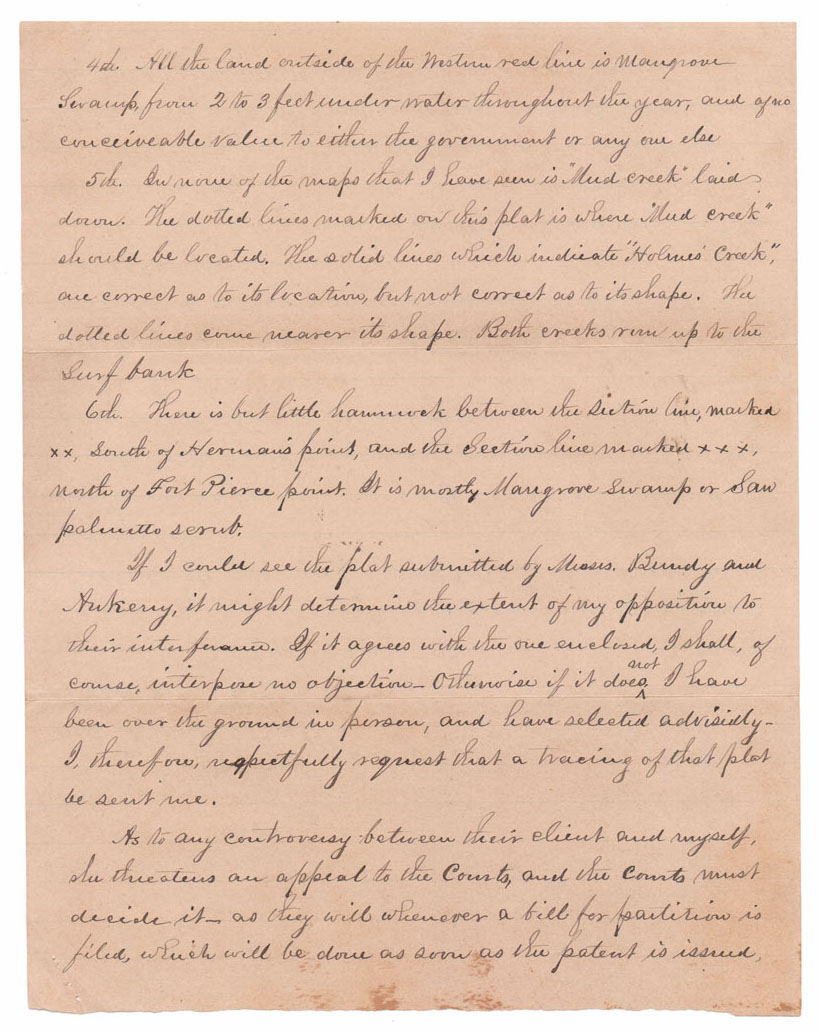 4th. All the land outside of the Western red line is Mangrove
Swamp, from 2 to 3 feet under water throughout the year, and of no
conceiveable value to either the government or any one else
5th. In none of the maps that I have seen is "Mud creek" laid
down. The dotted lines marked on this plat is where "Mud creek"
should be located. The solid lines which indicate "Holmes' Creek",
are correct as to its location, but not correct as to its shape. The
dotted lines come nearer its shape. Both creeks run up to the
Surf bank
6th. There is but little hammock between the Section line, marked
xx, South of Herman's point, and the Section line marked x x x,
north of Fort Pierce point. It is mostly Mangrove Swamp or Saw
palmetto scrub.
If I could see the plat submitted by Messrs. Bundy and
Ankeny, it might determine the extent of my opposition to
their interference. If it agrees with the one enclosed, I shall, of
course, interpose no objection – Otherwise if it does not I have
been over the ground in person, and have selected advisidly –
I, therefore, respectfully request that a tracing of that plat
be sent me.
As to any controversy between their client and myself,
she threatens an appeal to the Courts, and the Courts must
decide it – as they will whenever a bill for partition is
filed, which will be done as soon as the patent is issued,